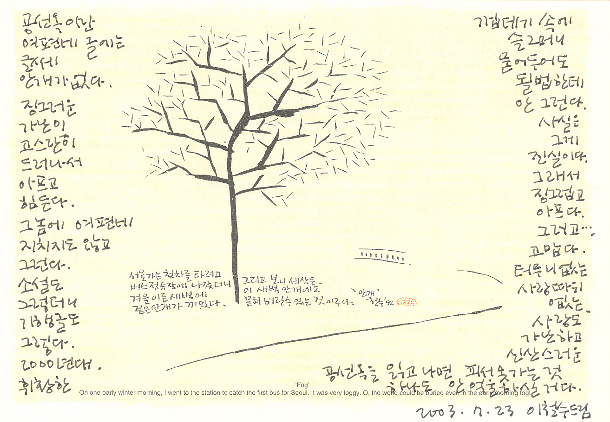 공선옥이란
여편네 글에는
글쎄
안개가 없다.
징그러운
가난이
고스란히
드러나서
아프고
힘든다.
그 놈에 여편네
지치지도 않고
그런다.
소설도
그렇더니
기행글도
그렇다.
2000년대.
휘황한
껍데기 속에
슬그머니
묻어둔어도
될법한데
안 그런다.
사실은
그게
진실이다.
그래서
징그럽고
아프다.
그리고…
고맙다.
터무니없는
사랑따위
없는
사랑도
가난하고
신산스러운
공선옥을 읽고나면 피서 못가는 것
하나도 안 억울하실 게다.
2003. 7. 23 이철수드림
서울가는 첫차를 타려고
버스정류장에 나갔더니
겨울 이른 새벽에
짙은 안개가 끼었다.
그리고 보니 세상은
이 새벽 안개에도
묻혀 버릴 수 있는 것이로다.
"안개"
철수 '92
'Fog'
On one early winter morning, I went to the station to catch the first bus for Seoul. It was very foggy. O, the world could be buried even in the early morning fog!